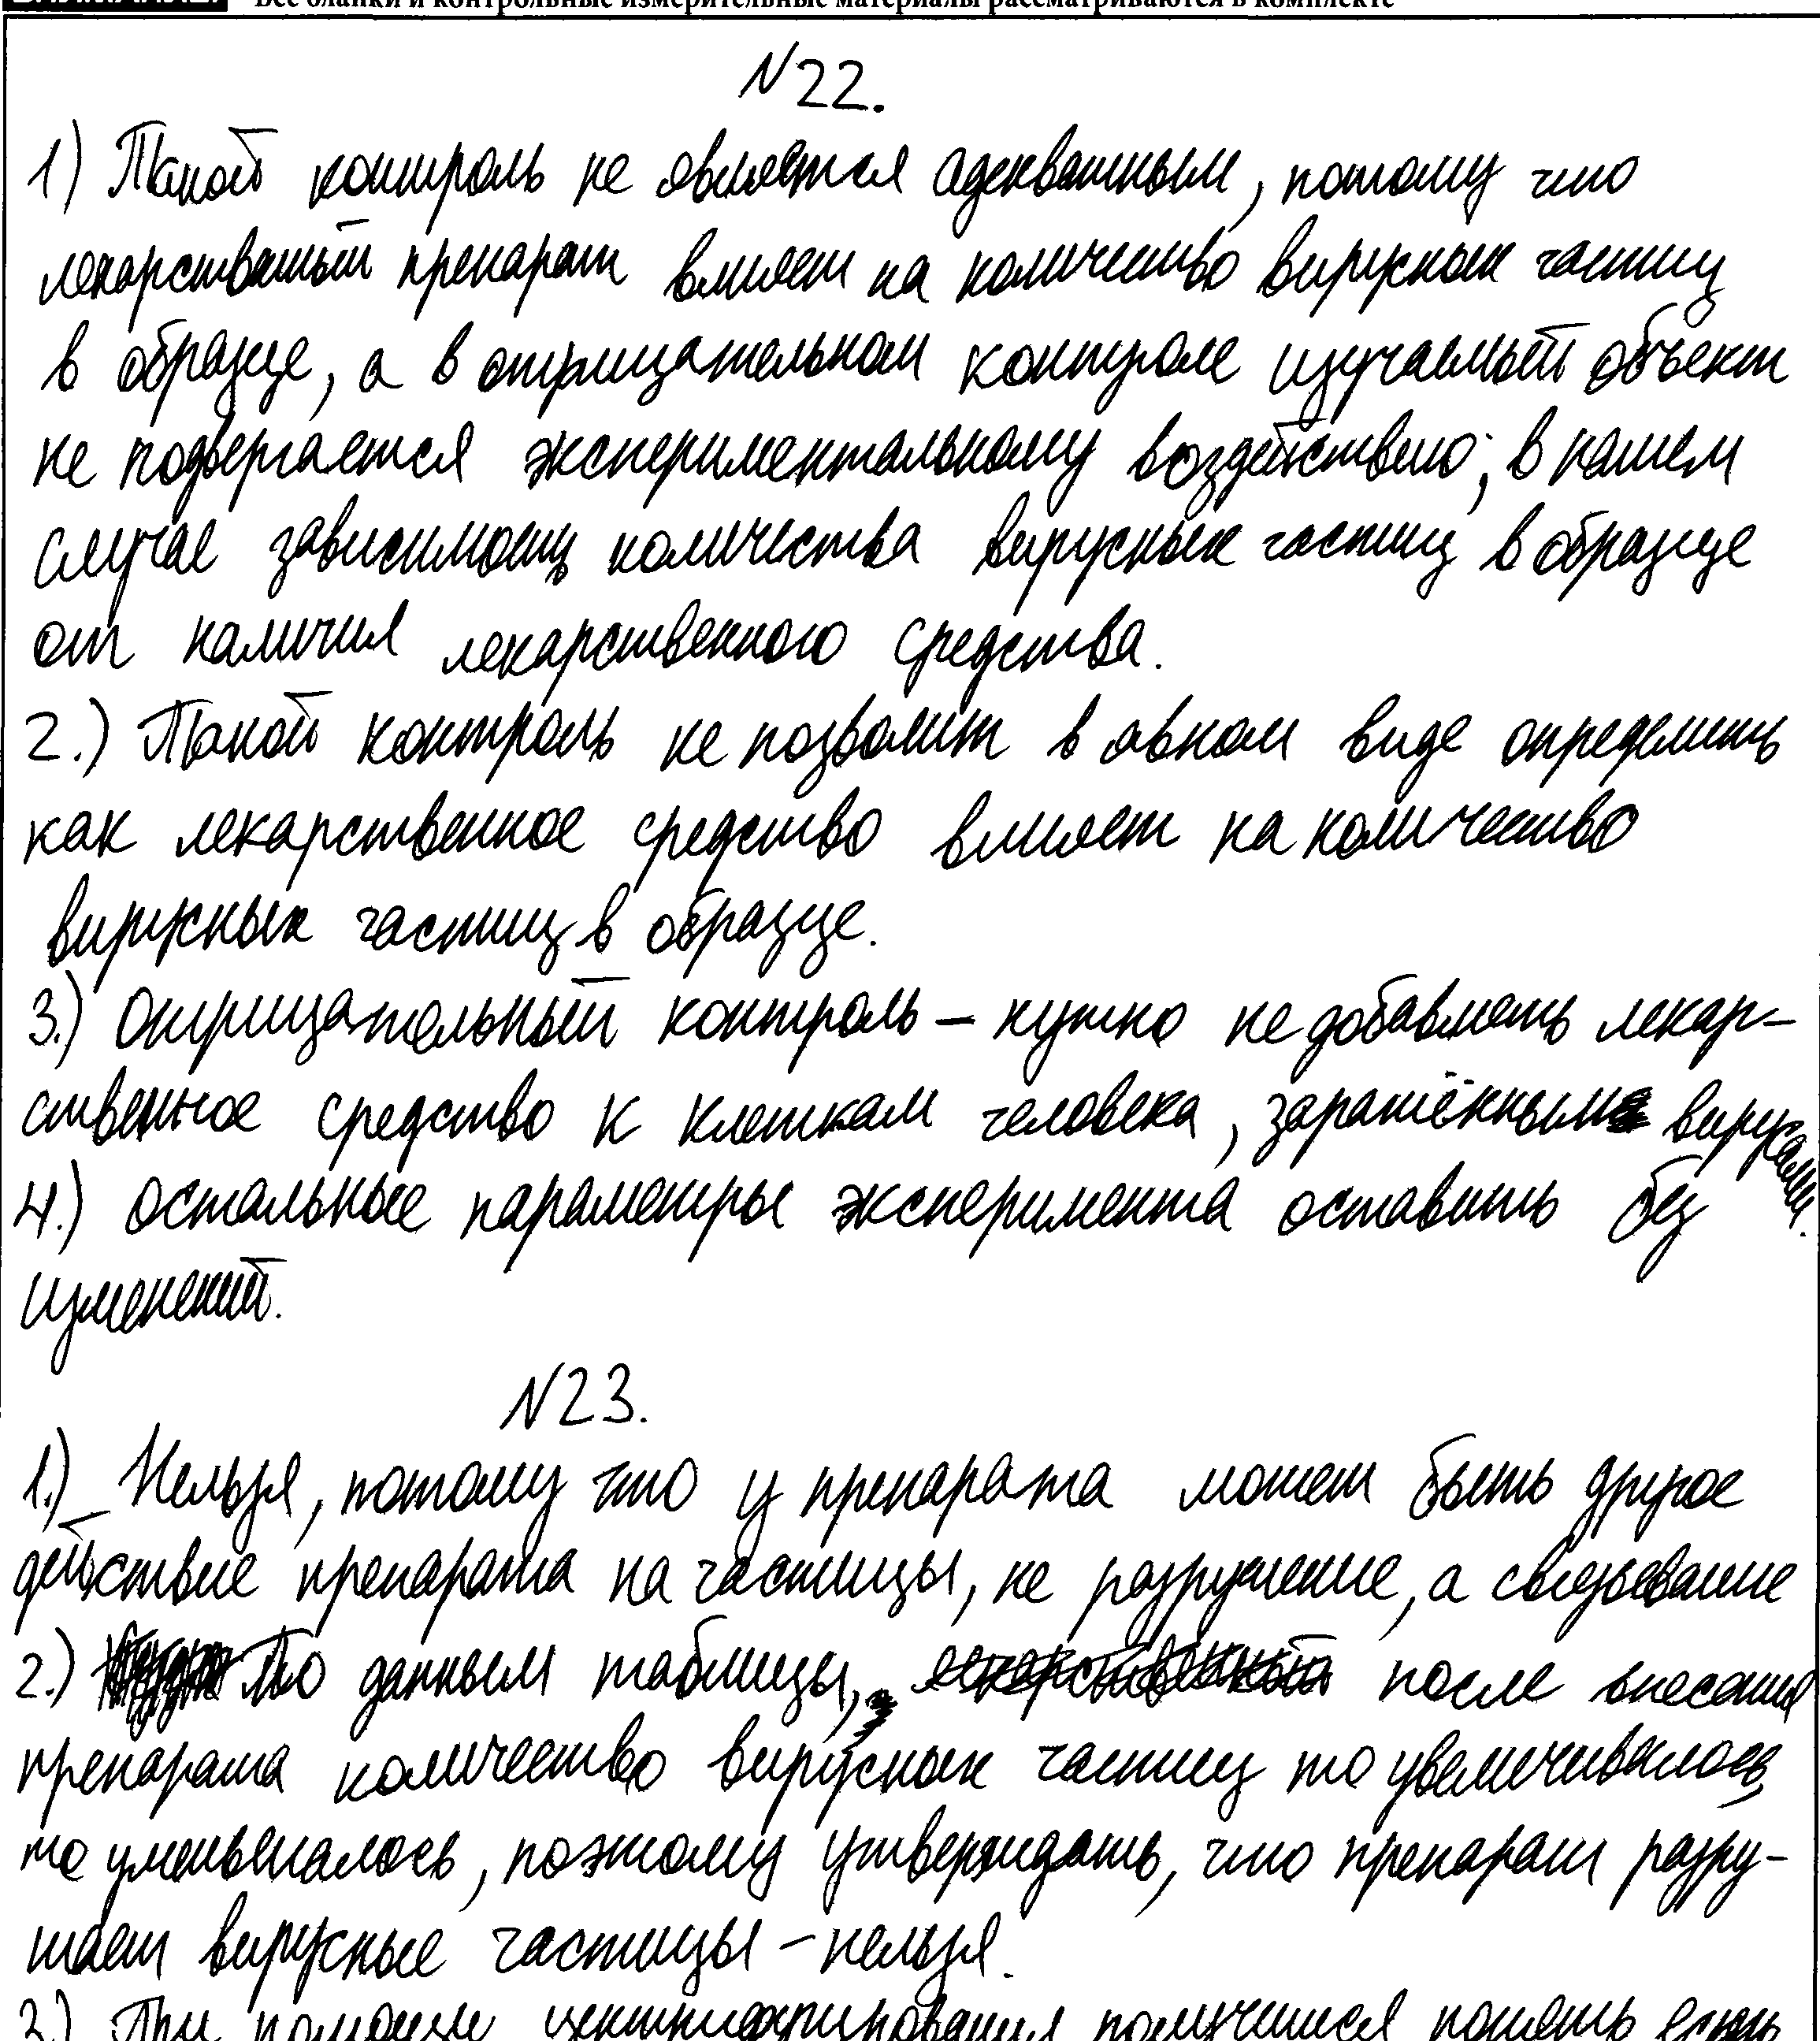 Все бланки и контрольные измерительные материалы рассматриваются в комплекте
N22.
1) Такой контроль не является адекватным, потому что
лекарственный препарат влияет на количество вирусных частиц
в образце, а в отрицательном контроле изучаемый объект
не подвергается экспериментальному воздействию, в нашем
случае зависимость количества вирусных частиц в образце
от наличия лекарственного средства.
2.) Такой контроль не позволит в явном виде определить
как лекарственное средство влияет на количество
вирусных частиц в образце.
3.) Отрицательный контроль – нужно не добавлять лекар-
ственное средство к клеткам человека, заражённым вирусами.
4.) остальные параметры эксперимента оставить без
изменений.
N23.
1.) Нельзя, потому что у препарата может быть другое
действие препарата на частицы, не разрушение, а связывание
2.) По данным таблицы, после внесения
препарата количество вирусных частиц то увеличивалось,
то уменьшалось, поэтому утверждать, что препарат разру-
шает вирусные частицы – нельзя.
3.) При помощи центрифугирования получится понять есть